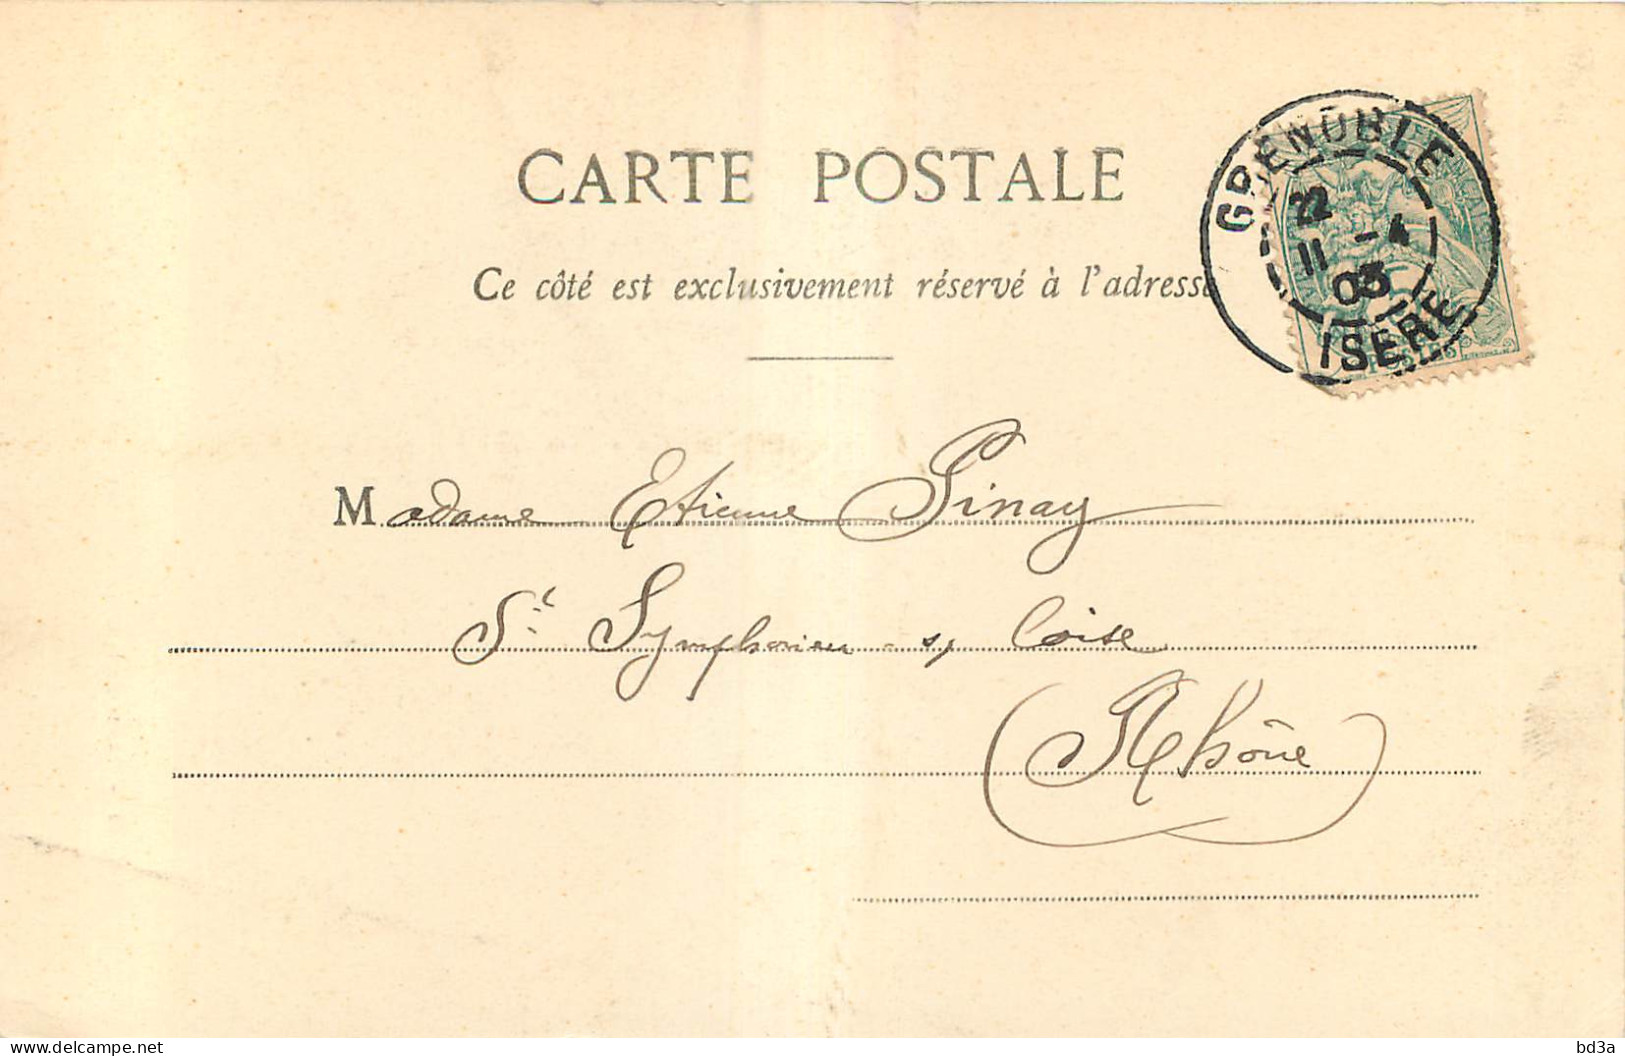 CARTE POSTALE
Ce côté est exclusivement réservé à l'adresse
GRENOBLE
22
11 -4
03
ISÈRE
POSTES
Madame Etienne Pinay
St Symphorien - s/ Coise
(Rhône)
bd3a
www.delcampe.net